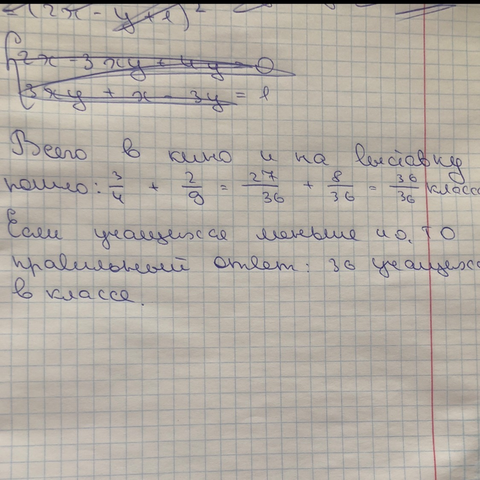 (2x - y + 1)²
2x - 3xy + 4y = 0
3xy + x - 3y = 1
Всего в кино и на выставку
пошло: 3/4 + 2/9 = 27/36 + 8/36 = 36/36 класс
Если учащихся меньше 40, то
правильный ответ: 36 учащихс
в классе.